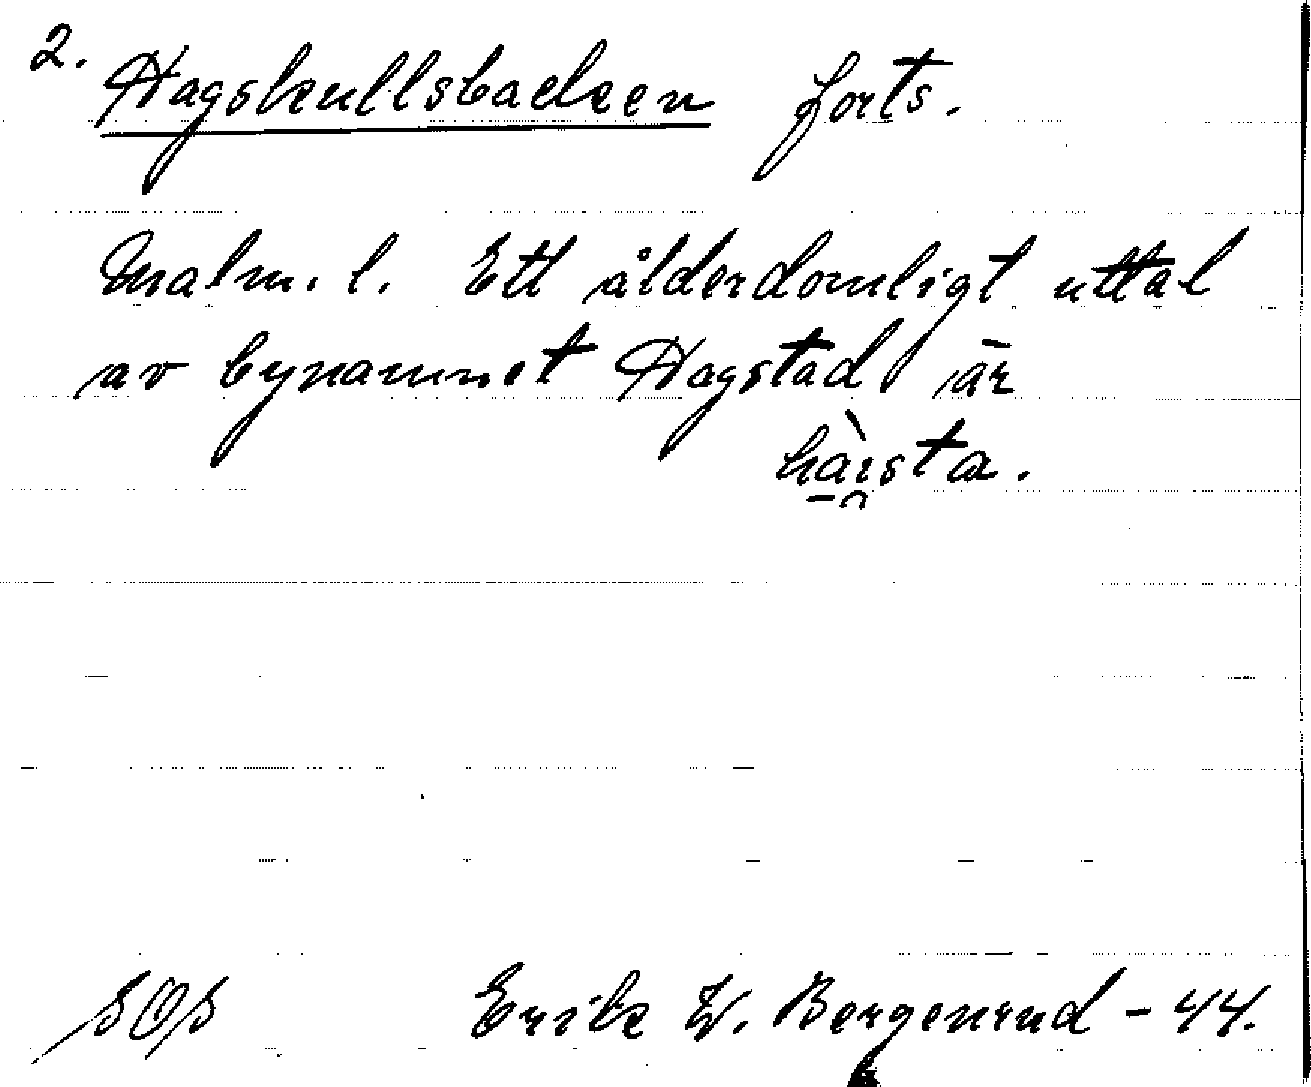 2. Hagskullsbacken forts.
Malm. l. Ett ålderdomligt uttal
av bynamnet Hagstad är
hàı̯sta.
SOS Erik W. Bergenrud - 44.